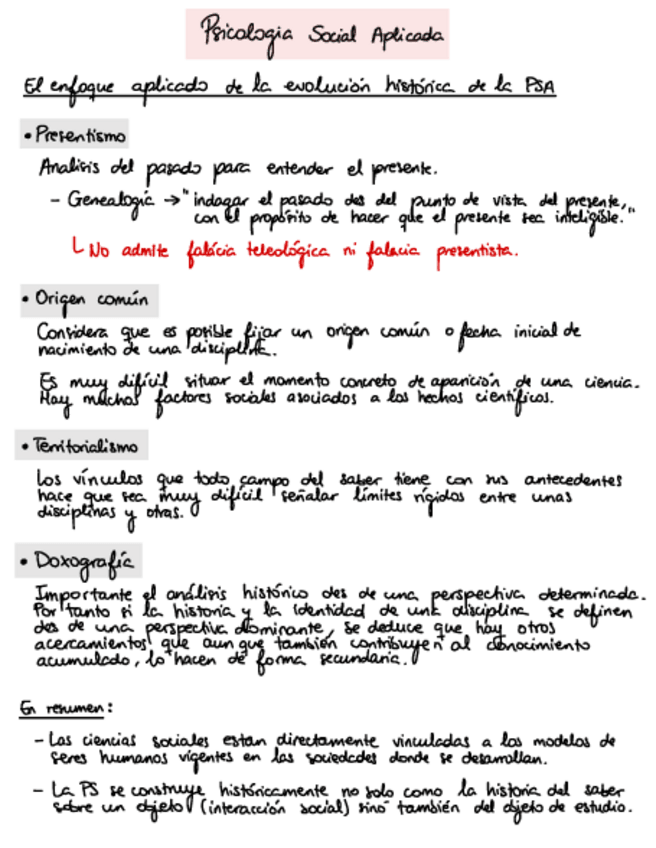 Psicología Social Aplicada
El enfoque aplicado de la evolución histórica de la PSA
• Presentismo
Analisis del pasado para entender el presente.
- Genealogía → "indagar el pasado des del punto de vista del presente,
con el propósito de hacer que el presente sea inteligible."
↳ No admite falácia teleológica ni falacia presentista.
• Origen común
Considera que es posible fijar un origen común o fecha inicial de
nacimiento de una disciplina.
Es muy difícil situar el momento concreto de aparición de una ciencia.
Hay muchos factores sociales asociados a los hechos científicos.
• Territorialismo
Los vínculos que todo campo del saber tiene con sus antecedentes
hace que sea muy difícil señalar límites rígidos entre unas
disciplinas y otras.
• Doxografía
Importante el análisis histórico des de una perspectiva determinada.
Por tanto si la historia y la identidad de una disciplina se definen
des de una perspectiva dominante, se deduce que hay otros
acercamientos que aun que también contribuyen al conocimiento
acumulado, lo hacen de forma secundaria.
En resumen:
- Las ciencias sociales estan directamente vinculadas a los modelos de
seres humanos vigentes en las sociedades donde se desarrollan.
- La PS se construye históricamente no solo como la historia del saber
sobre un objeto (interacción social) sino también del objeto de estudio.